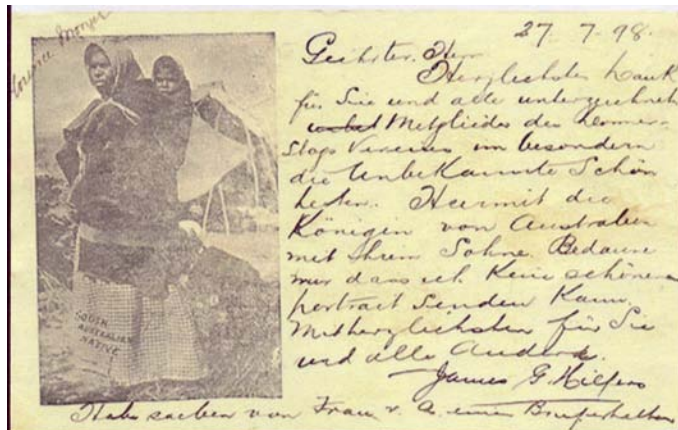 27 - 7 - 98.
Geehrter Herr
Herzlichsten Dank
für Sie und alle unterzeichneten
Mitglieder des
Vereins im besondern
die Unbekannte Schön
heiten. Hiermit die
Königin von Australien
mit Ihrem Sohne. Bedaure
nur dass ich Keine schönere
portrait Senden Kann.
Mit herzlichsten für Sie
und alle Andere.
James G. Hilfers
Habe soeben von Frau v. A. einen Brief erhalten
SOUTH
AUSTRALIAN
NATIVE